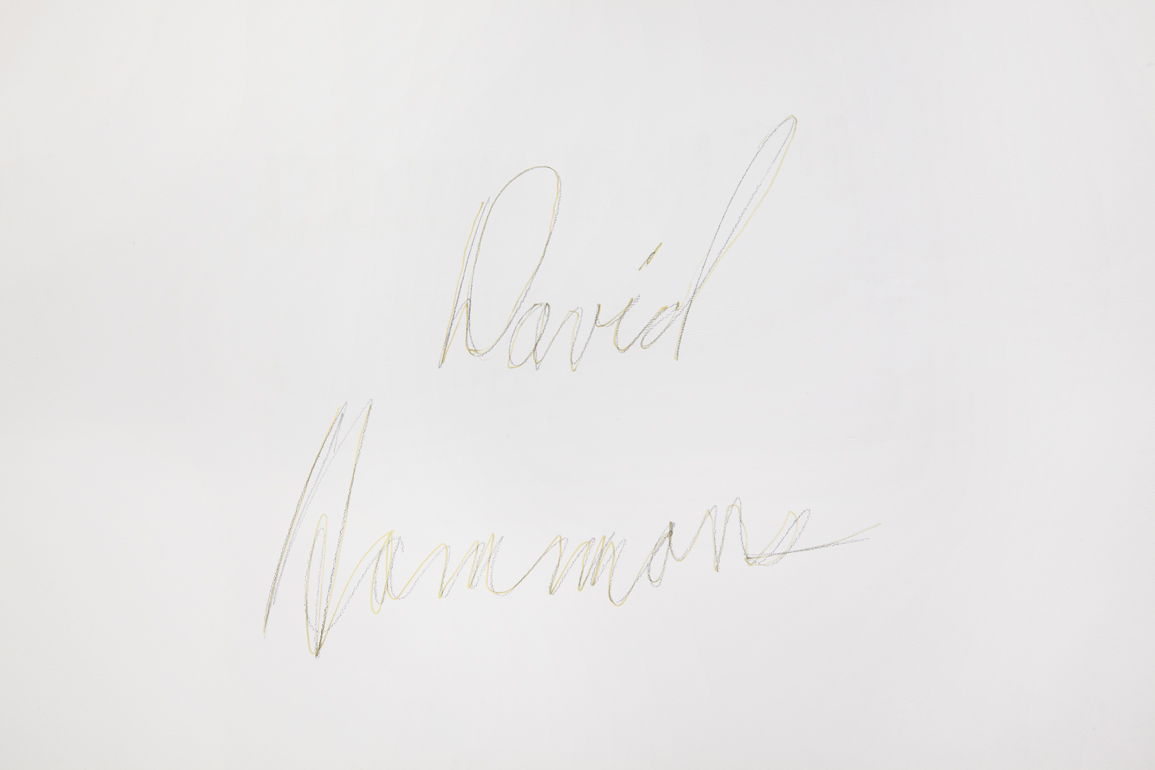 David
Hammons